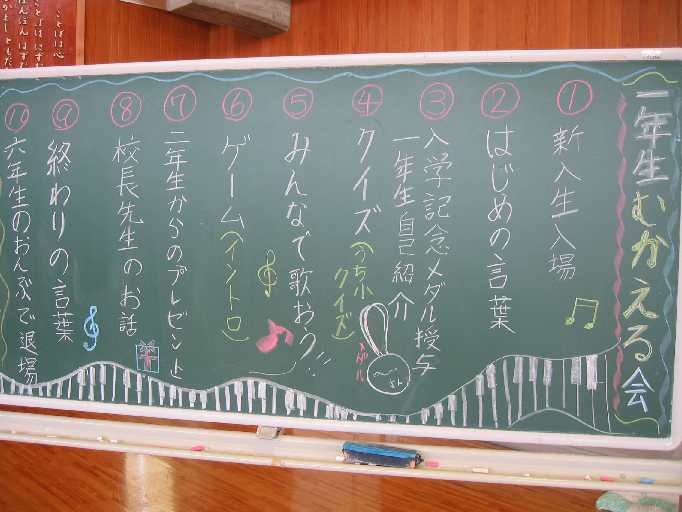 一年生むかえる会
① 新入生入場
② はじめの言葉
③ 入学記念メダル授与
一年生自己紹介
メダル
④ クイズ(うち小
クイズ)
⑤ みんなで歌おう!!
⑥ ゲーム(イントロ)
⑦ 二年生からのプレゼント
⑧ 校長先生のお話
⑨ 終わりの言葉
⑩ 六年生のおんぶで退場
ことばは心